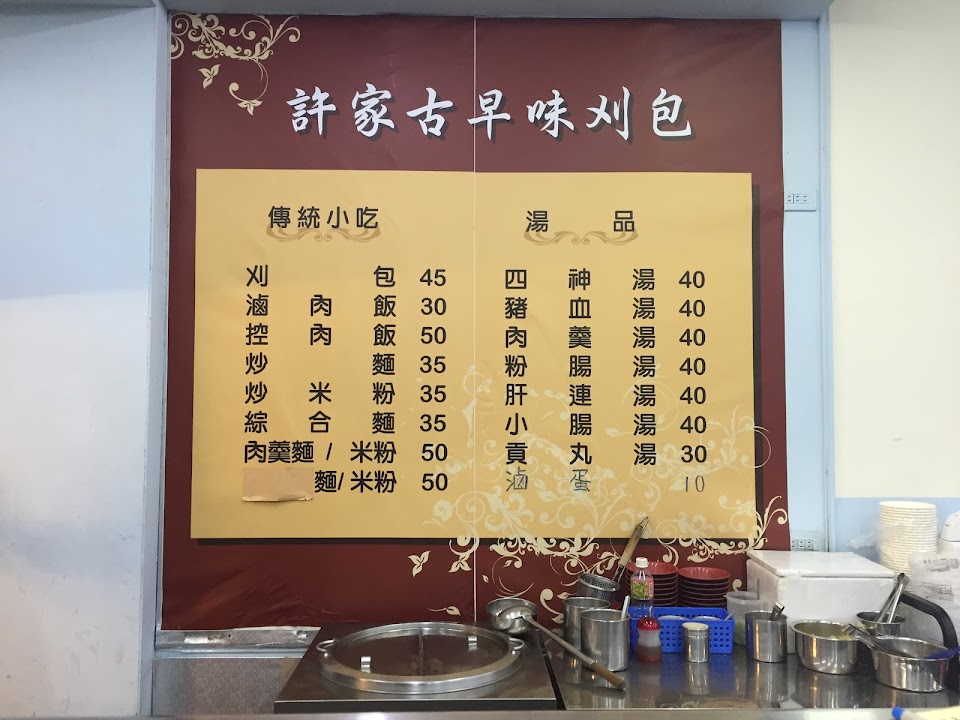 許家古早味刈包
傳統小吃
刈包 45
滷肉飯 30
控肉飯 50
炒麵 35
炒米粉 35
綜合麵 35
肉羹麵 / 米粉 50
麵/ 米粉 50
湯品
四神湯 40
豬血湯 40
肉羹湯 40
粉腸湯 40
肝連湯 40
小腸湯 40
貢丸湯 30
滷蛋 10